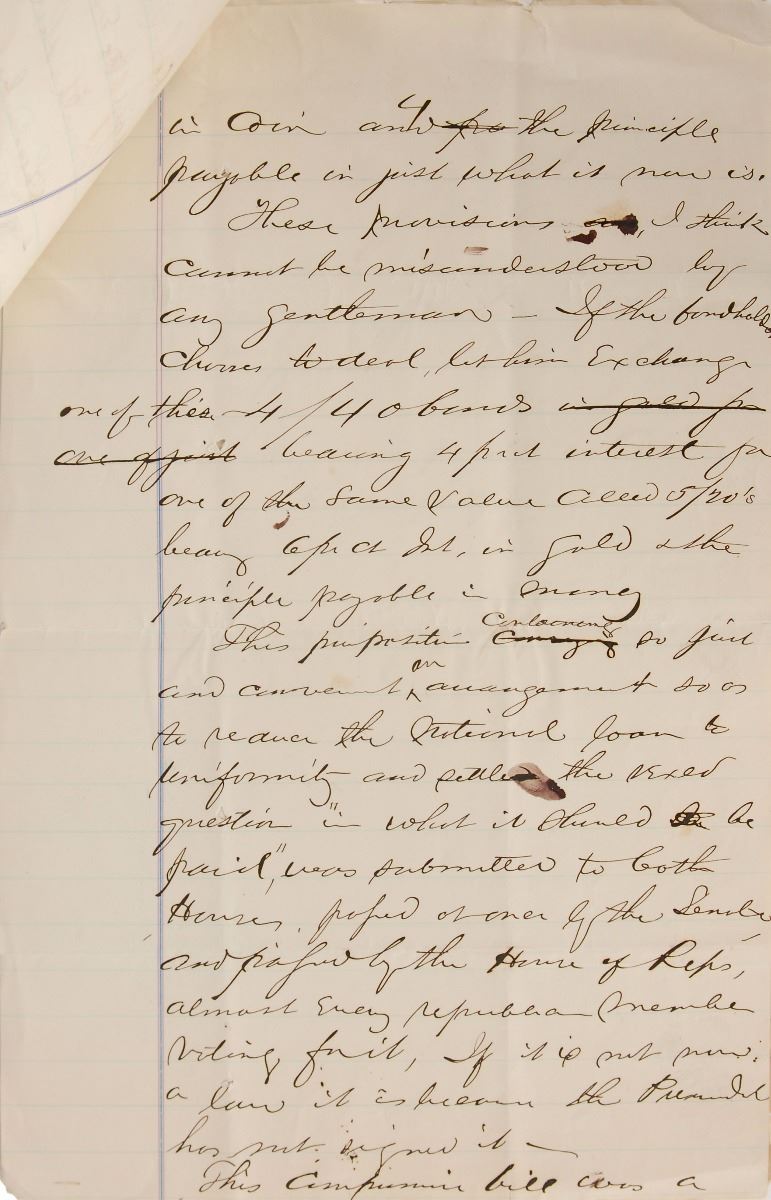 in Coin and 4 the principle
payable in just what it now is.
These provisions, I think
cannot be misunderstood by
any gentleman – If the bondholder
chuses to deal, let him Exchange
one of these 4/40 bonds in gold for
one of just bearing 4 pr ct interest for
one of the same value called 5/20's
bearing 6 pr ct Int, in gold & the
principle payable in money
This proposition Containing so just
and convenient an arrangement so as
to reduce the National loan to
uniformity and settle the vexed
question "in what it should be
paid", was submitted to both
Houses, passed at once by the Senate,
and passed by the House of Reps,
almost Every republican member
voting for it, If it is not now
a law it is because the President
has not signed it –
This Compromise bill was a